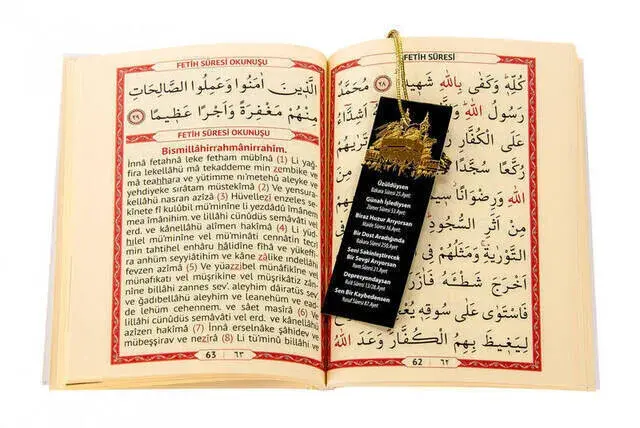 FETİH SÛRESİ
كُلِّهٖ وَكَفٰى بِاللّٰهِ شَهٖيدًا ﴿٢٨﴾ مُحَمَّدٌ
رَسُولُ اللّٰهِ اَشِدَّٓاءُ
عَلَى الْكُفَّارِ تَرٰيهُمْ
رُكَّعًا سُجَّدًا
اللّٰهِ وَرِضْوَانًا
مِنْ اَثَرِ السُّجُودِ
التَّوْرٰيةِ وَمَثَلُهُمْ
اَخْرَجَ شَطْـَٔهُ فَاٰزَرَهُ
فَاسْتَوٰى عَلٰى سُوقِهٖ يُعْجِبُ
لِيَغٖيظَ بِهِمُ الْكُفَّارَ وَعَدَ اللّٰهُ
62 ٦٢
Üzüldüysen
Bakara Sûresi 25.Ayet
Günah İşlediysen
Zümer Sûresi 53.Ayet
Biraz Huzur Arıyorsan
Maide Sûresi 16.Ayet
Bir Dost Aradığında
Bakara Sûresi 250.Ayet
Seni Sakinleştirecek
Bir Sevgi Arıyorsan
Rum Sûresi 21.Ayet
Depresyondaysan
Ra'd Sûresi 13/28.Ayet
Sen Bir Kaybedensen
Yusuf Sûresi 87.Ayet
FETİH SÛRESİ OKUNUŞU
الَّذٖينَ اٰمَنُوا وَعَمِلُوا الصَّالِحَاتِ
مِنْهُمْ مَغْفِرَةً وَاَجْرًا عَظٖيمًا ﴿٢٩﴾
FETİH SÛRESİ OKUNUŞU
Bismillâhirrahmânirrahîm.
İnnâ fetahnâ leke fetham mübînâ (1) Li yağ-
fira lekellâhü mâ tekaddeme min zembike ve
mâ teahhara ve yütimme ni'metehû aleyke ve
yehdiyeke sırâtam müstekîmâ (2) Ve yensura-
kellâhü nasran azîzâ (3) Hüvellezî enzeles se-
kînete fî kulûbil mü'minîne li yezdâdû îmânem
mea îmânihim. ve lillâhi cünûdüs semâvâti vel
erd. ve kânellâhü alîmen hakîmâ (4) Li yüd-
hılel mü'minîne vel mü'minâti cennâtin tecrî
min tahtihel enhâru hâlidîne fîhâ ve yükeffi-
ra anhüm seyyiâtihim ve kâne zâlike ındellâhi
fevzen azîmâ (5) Ve yüazzibel münâfikîne vel
münafikati vel müşrikîne vel müşrikâtiz zân-
nîne billâhi zannes sev'. aleyhim dâiratüs sev'
ve ğadıbellâhü aleyhim ve leanehüm ve ead-
de lehüm cehennem. ve sâet masîrâ (6) Ve
lillâhi cünûdüs semâvâti vel erd. ve kânellâhü
azîzen hakîmâ (7) İnnâ erselnâke şâhidev ve
mübeşşirav ve nezîrâ (8) Li tü'minû billâhi ve
63 ٦٣